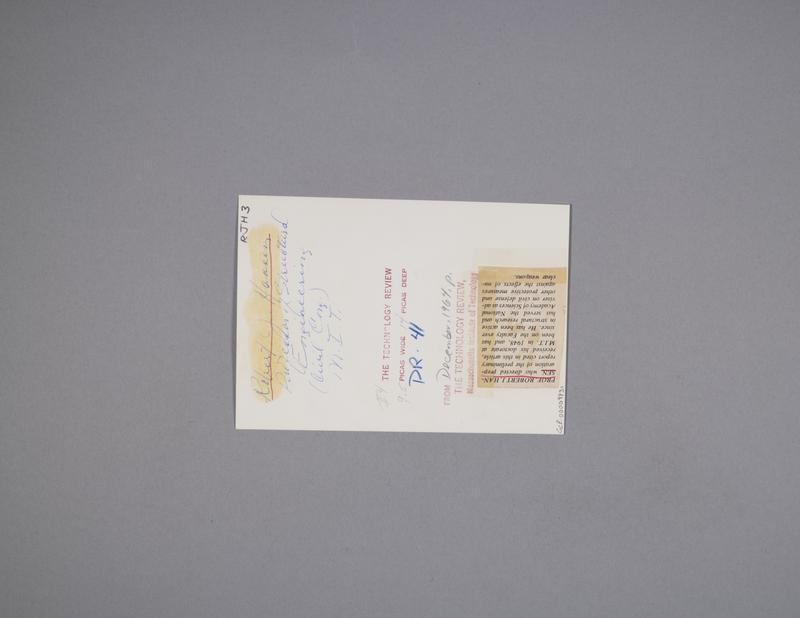 RJH3
Robert J. Hansen
Professor of Structural
Engineering
(Civil Eng)
M.I.T.
THE TECHNOLOGY REVIEW
9.5 PICAS WIDE 14 PICAS DEEP
DR. 41
FROM December, 1964, p.
THE TECHNOLOGY REVIEW,
Massachusetts Institute of Technology
PROF. ROBERT J. HAN-
SEN, who directed prep-
aration of the preliminary
report cited in this article,
received his doctorate at
M.I.T. in 1948, and has
been on the Faculty ever
since. He has been active
in structural research and
has served the National
Academy of Sciences as ad-
viser on civil defense and
other protective measures
against the effects of nu-
clear weapons.